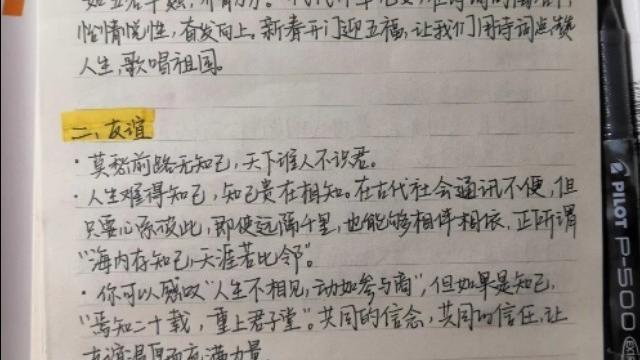 怡情悦性，奋发向上。新春开门迎五福，让我们用诗词点赞
人生，歌唱祖国。
二、友谊
·莫愁前路无知己，天下谁人不识君。
·人生难得知己，知己贵在相知。在古代社会通讯不便，但
只要心系彼此，即使远隔千里，也能够相伴相依，正所谓
"海内存知己，天涯若比邻"。
·你可以感叹"人生不相见，动如参与商"，但如果是知己，
"焉知二十载，重上君子堂"。共同的信念，共同的信任，让
PILOT P-500